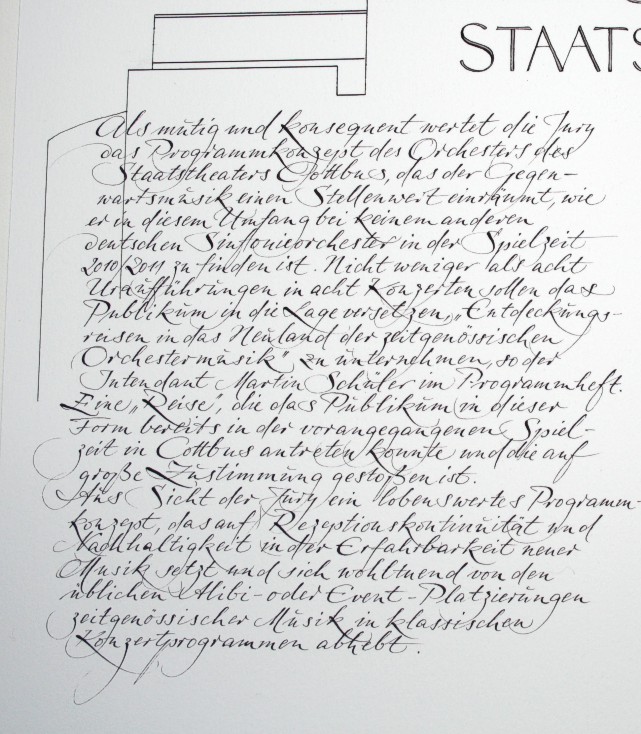 STAATS
Als mutig und konsequent wertet die Jury
das Programmkonzept des Orchesters des
Staatstheaters Cottbus, das der Gegen-
wartsmusik einen Stellenwert einräumt, wie
er in diesem Umfang bei keinem anderen
deutschen Sinfonieorchester in der Spielzeit
2010/2011 zu finden ist. Nicht weniger als acht
Uraufführungen in acht Konzerten sollen das
Publikum in die Lage versetzen, „Entdeckungs-
reisen in das Neuland der zeitgenössischen
Orchestermusik" zu unternehmen, so der
Intendant Martin Schüler im Programmheft.
Eine „Reise", die das Publikum in dieser
Form bereits in der vorangegangenen Spiel-
zeit in Cottbus antreten konnte und die auf
große Zustimmung gestoßen ist.
Aus Sicht der Jury ein lobenswertes Programm-
konzept, das auf Rezeptionskontinuität und
Nachhaltigkeit in der Erfahrbarkeit neuer
Musik setzt und sich wohltuend von den
üblichen Alibi- oder Event-Platzierungen
zeitgenössischer Musik in klassischen
Konzertprogrammen abhebt.